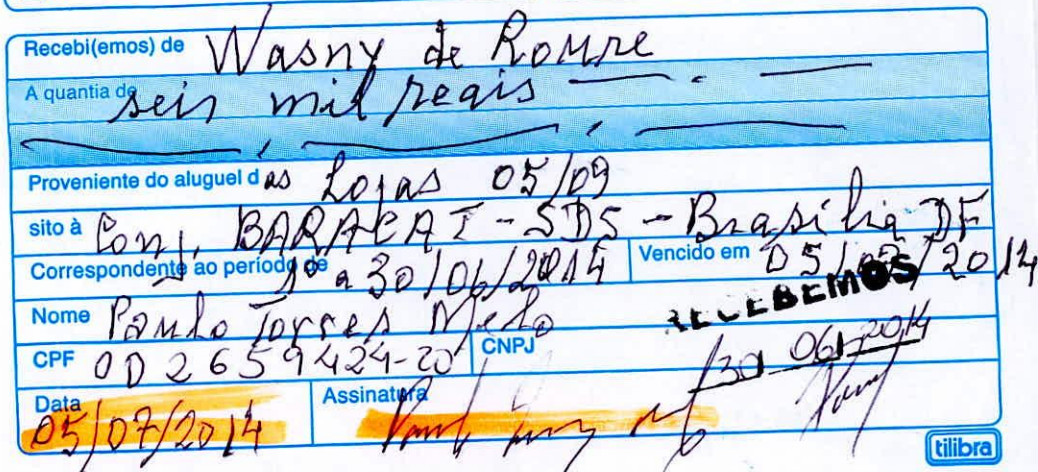 Recebi(emos) de Wasny de Roure
A quantia de seis mil reais
Proveniente do aluguel das Lojas 05/09
sito à Conj. BARACAT - SDS - Brasília DF
Correspondente ao período de 1º a 30/06/2014 Vencido em 05/07/2014
Nome Paulo Torres Melo
RECEBEMOS
CPF 002659424-20 CNPJ
30 06 2014
Data Assinatura
05/07/2014
tilibra